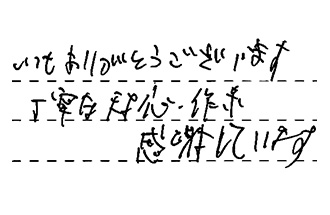 いつもありがとうございます
丁寧な対応・作業
感謝しています